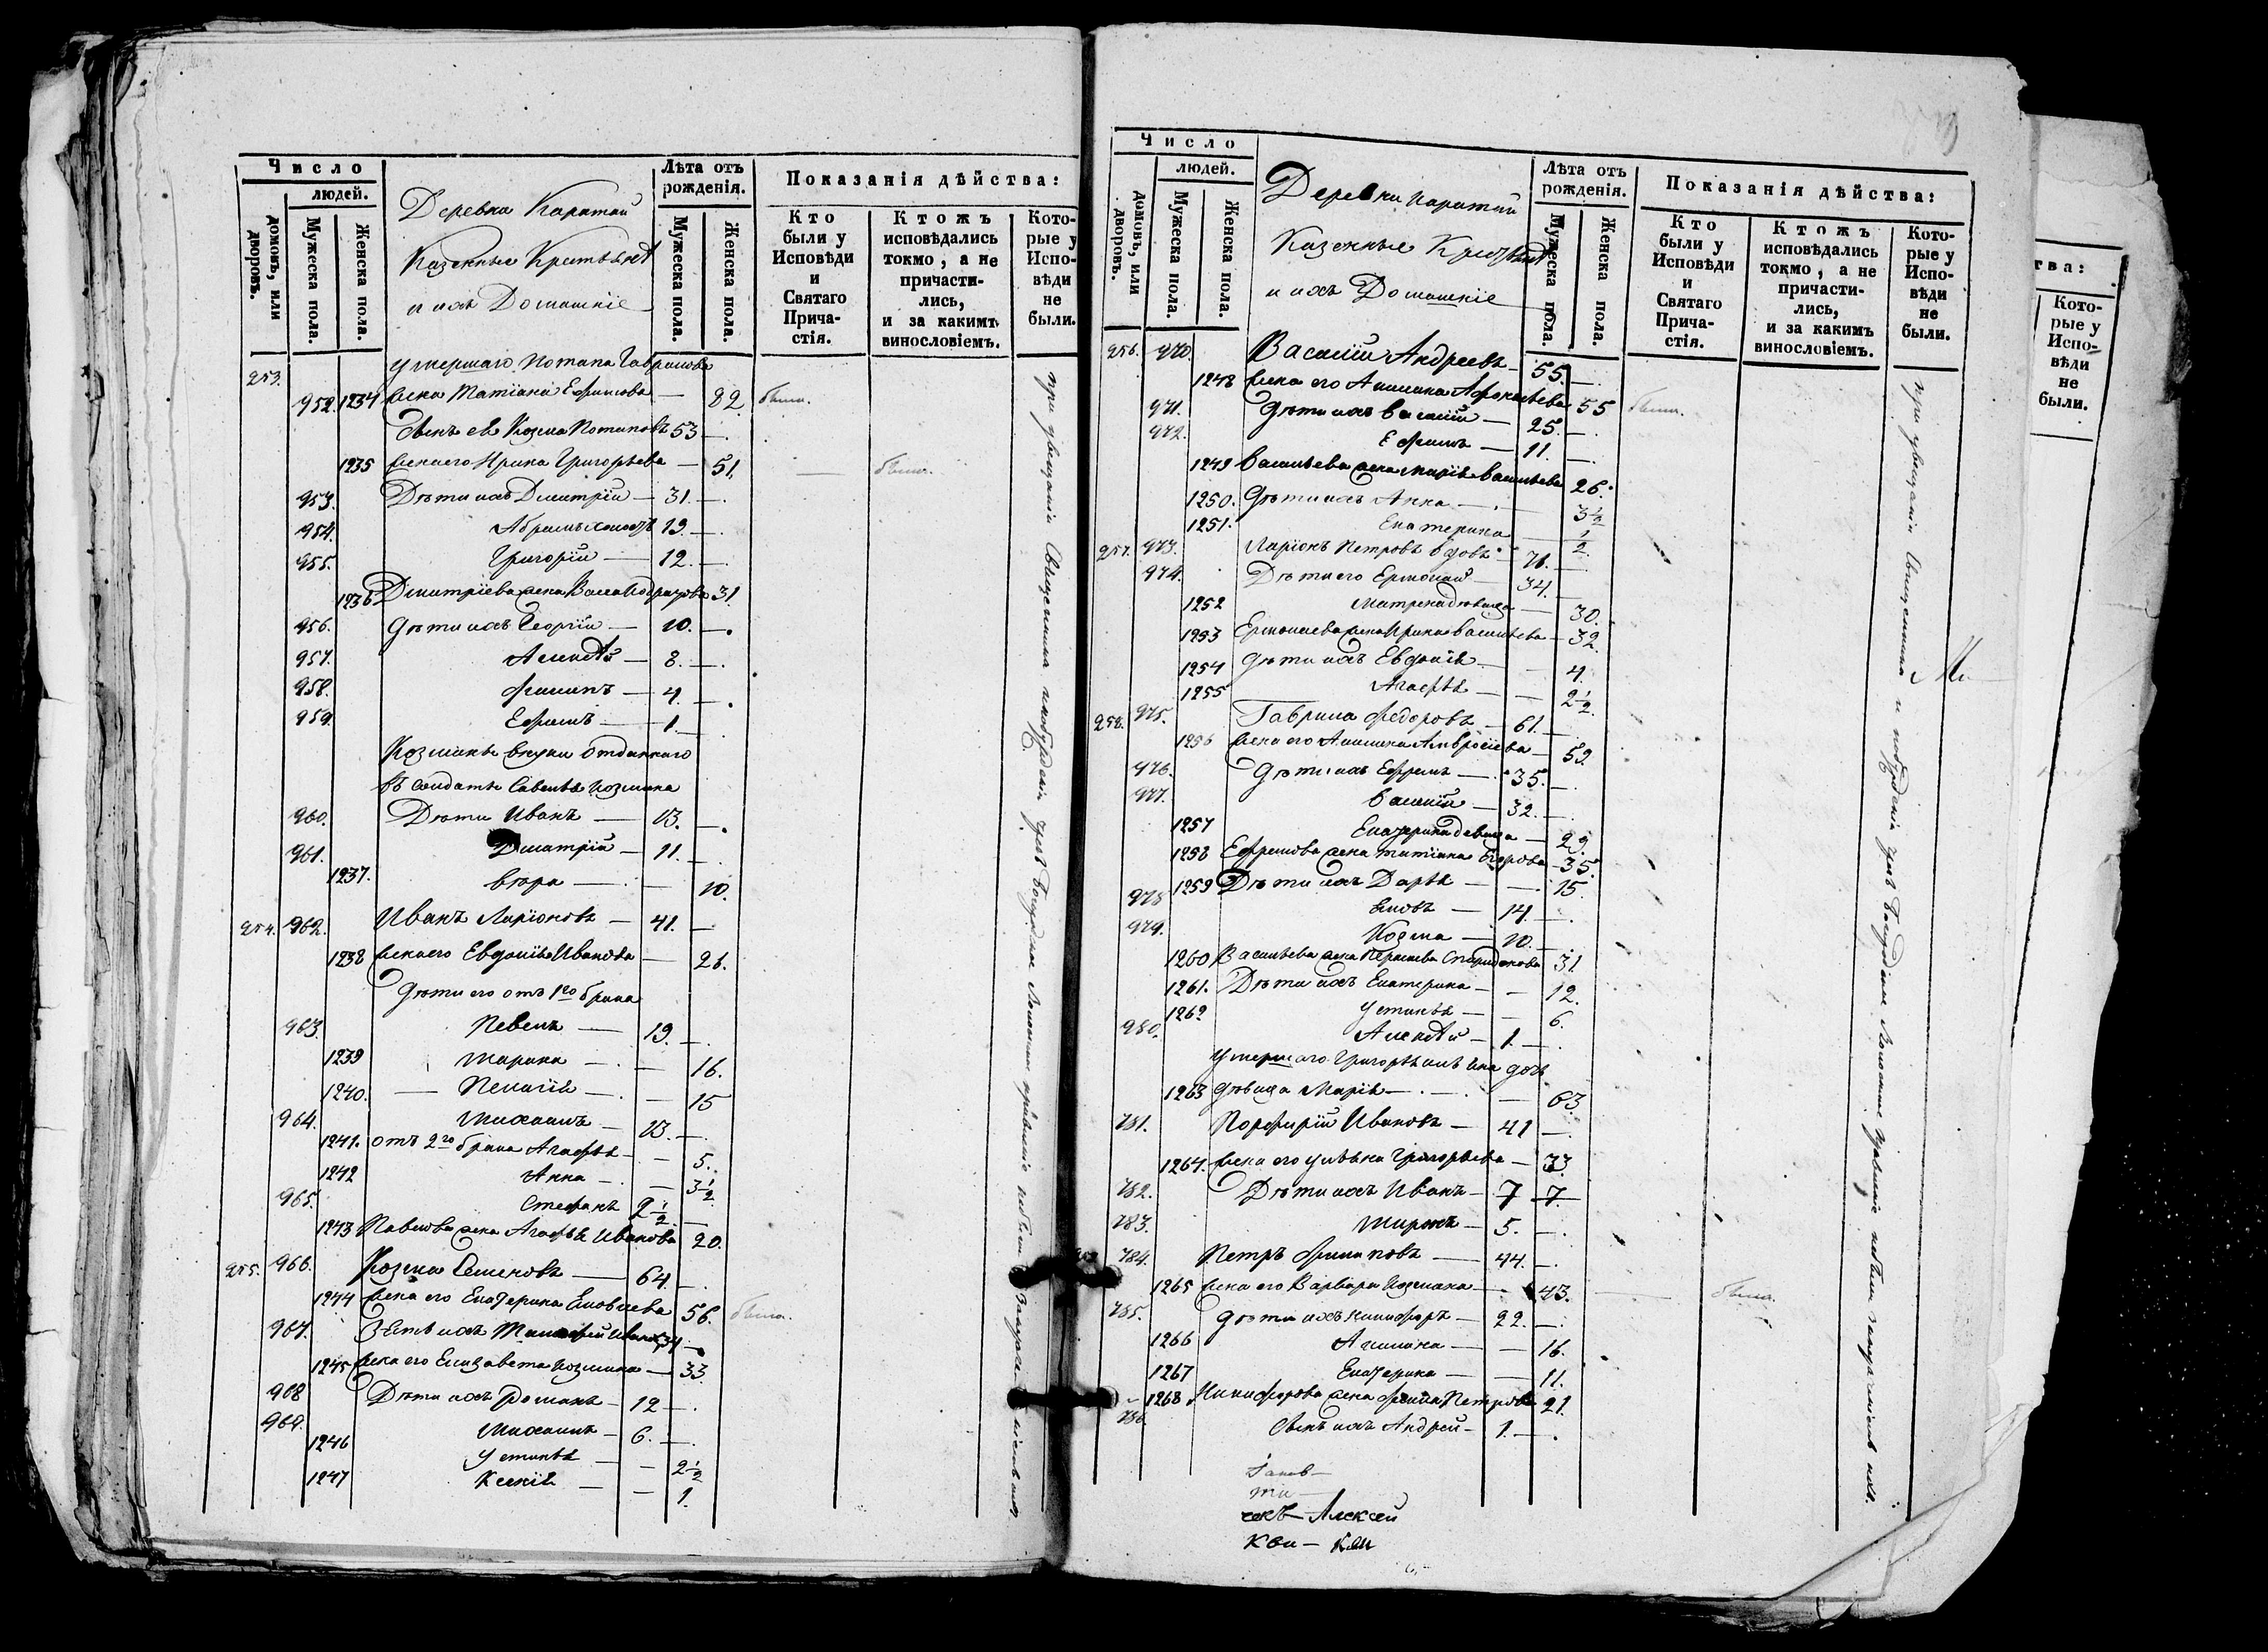 Число
людей.
домовъ, или дворовъ.
Мужеска пола.
Женска пола.
Деревна Каратай
Казенные
и ихъ Домашніе
Лѣта отъ рожденія.
Мужеска пола.
Женска пола.
Показанія дѣйства:
Кто были у Исповѣди и Святаго Прича-стія.
Ктожъ исповѣдались токмо, а не причасти-лись, и за какимъ винословіемъ.
Кото-рые у Испо-вѣди не были.
253. умершаго Потапа Гаврилова
952. 1234 жена Татіана Ефимова — 82. были.
сынъ ея Козма Потаповъ 53 —
1235 жена его Ирина Григорьева — 51. — были.
953. Дѣти ихъ Димитрій — 31. —
954. Абрамъ холостъ 19. —
955. Григорій — 12. —
1236 Дмитріева жена Васса 31.
956. Дѣти ихъ Георгій — 10. —
957. Алексѣй — 8. —
958. Филипъ — 4. —
959. Ефимъ — 1. —
Козмины внуки отданнаго
въ солдаты Савелья Козмина
960. Дѣти Иванъ — 13. —
961. Дмитрій — 11. —
1237. Вѣра — — 10.
254. 962. Иванъ Ларіоновъ — 41. —
1238 жена его Евдокія Иванова — 21.
Дѣти его отъ 1го брака
963. Павелъ — 19. —
1239 Марина — — 16.
1240. — Пелагія — — 15
964. Михаилъ — 13. —
1241. отъ 2го брака Агафья — — 5.
1242 Анна — — 3½
965. Стефанъ 2½ —
1243 Павлова жена Агафья Иванова 20.
255. 966. Козма Семеновъ — 64 —
1244 жена его Екатерина Яковлева 56. были.
967. Зять ихъ Тимофей Ивановъ 34 —
1245 жена его Елизавета Козмина — 33.
968 Дѣти ихъ Романъ — 12 —
969. Михаилъ — 6. —
1246 Устинья — — 2½
1247 Ксенія — — 1.
Число
людей.
домовъ, или дворовъ.
Мужеска пола.
Женска пола.
Деревни Каратай
Казенные
и ихъ Домашніе
Лѣта отъ рожденія.
Мужеска пола.
Женска пола.
Показанія дѣйства:
Кто были у Исповѣди и Святаго Прича-стія.
Ктожъ исповѣдались токмо, а не причасти-лись, и за какимъ винословіемъ.
Кото-рые у Испо-вѣди не были.
256. 970. Василій Андреевъ — 55. —
1248 жена его Акилина 55 были.
971. Дѣти ихъ Василій — 25. —
972. Ефимъ — 11. —
1249 Васильева жена Марія Васильева 26.
1250. Дѣти ихъ Анна — — 3½
1251. Екатерина — ½.
257. 973. Ларіонъ Петровъ вдовъ — 71. —
974. Дѣти его Ермолай — 34. —
1252 Матрена дѣвица — 30.
1253 Ермолаева жена Ирина Васильева — 32.
1254 Дѣти ихъ Евдокія — — 4.
1255 Агафья — — 2½.
258. 975. Гаврила Федоровъ — 61. —
1256 жена его Акилина Амвросіева — 52
976. Дѣти ихъ Ефремъ — 35. —
977. Василій — 32. —
1257 Екатерина девица — 29.
1258 Ефремова жена Татіана Егорова — 35.
1259 Дѣти ихъ Дарья — — 15.
978 Яковъ — 14. —
979. Козма — 10. —
1260 Васильева жена Спиридонова 31
1261. Дѣти ихъ Екатерина — — 12.
1262 Устинья — — 6.
980. Алексѣй — 1. —
умершаго Григорья дочь
1263 дѣвица Марія — — 63.
781. Порфирій Ивановъ — 41 —
1264. жена его Ульяна Григорьева — 33.
782. Дѣти ихъ Иванъ — 7 7.
783. Миронъ — 5. —
784. Петръ Филиповъ — 44. —
1265 жена его Варвара Козмина — 43. — были.
785. Дѣти ихъ Никифоръ — 22. —
1266 Акилина — — 16.
1267 Екатерина — — 11.
1268 Никифорова жена Петрова 21.
786. Сынъ ихъ Андрей — 1. —
Алексей
тва:
Кото-рые у Испо-вѣди не были.